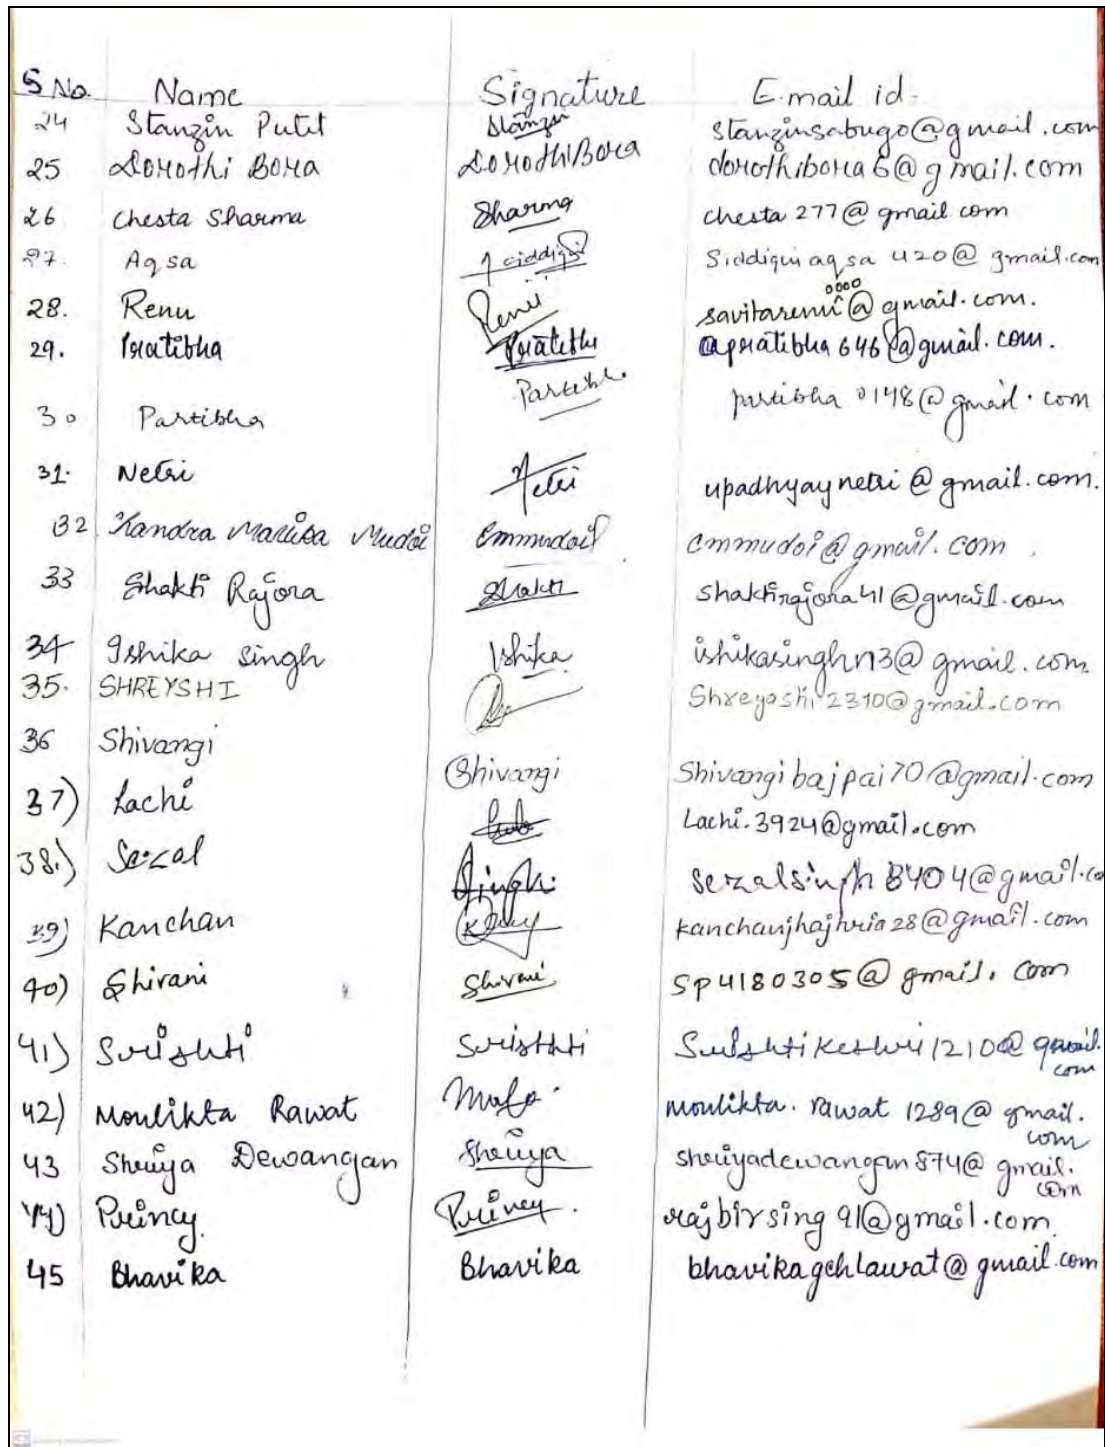 S No. Name Signature E.mail id-
24 Stanzin Putit Stanzin stanzinsabugo@gmail.com
25 Dorothi Bora DorothiBora dorothibora6@gmail.com
26 Chesta Sharma Sharma chesta277@gmail.com
27. Aqsa Siddiqui Siddiquiaqsa420@gmail.com
28. Renu Renu savitarenu0000@gmail.com.
29. Pratibha Pratibha apratibha646@gmail.com.
30 Partibha Partibha partibha0148@gmail.com
31. Netri Netri upadhyaynetri@gmail.com.
32. Mudoi Emmudoi emmudoi@gmail.com
33 Shakti Rajora Shakti shaktirajora41@gmail.com
34 Ishika Singh Ishika ishikasinghn13@gmail.com
35. SHREYSHI Shreyoshi2310@gmail.com
36 Shivangi Shivangi Shivangibajpai70@gmail.com
37) Lachi Lachi.3924@gmail.com
38.) Sezal Singh sezalsingh8404@gmail.co
39) Kanchan kanchanjhajhria28@gmail.com
40) Shivani Shivani sp4180305@gmail.com
41) Srishti Sristhti
42) Moulikta Rawat moulikta.rawat1289@gmail.
com
43 Shriya Dewangan Shriya shriyadewangan874@gmail.
com
44) Princy. Princy. rajbirsing91@gmail.com
45 Bhavika Bhavika bhavikagehlawat@gmail.com